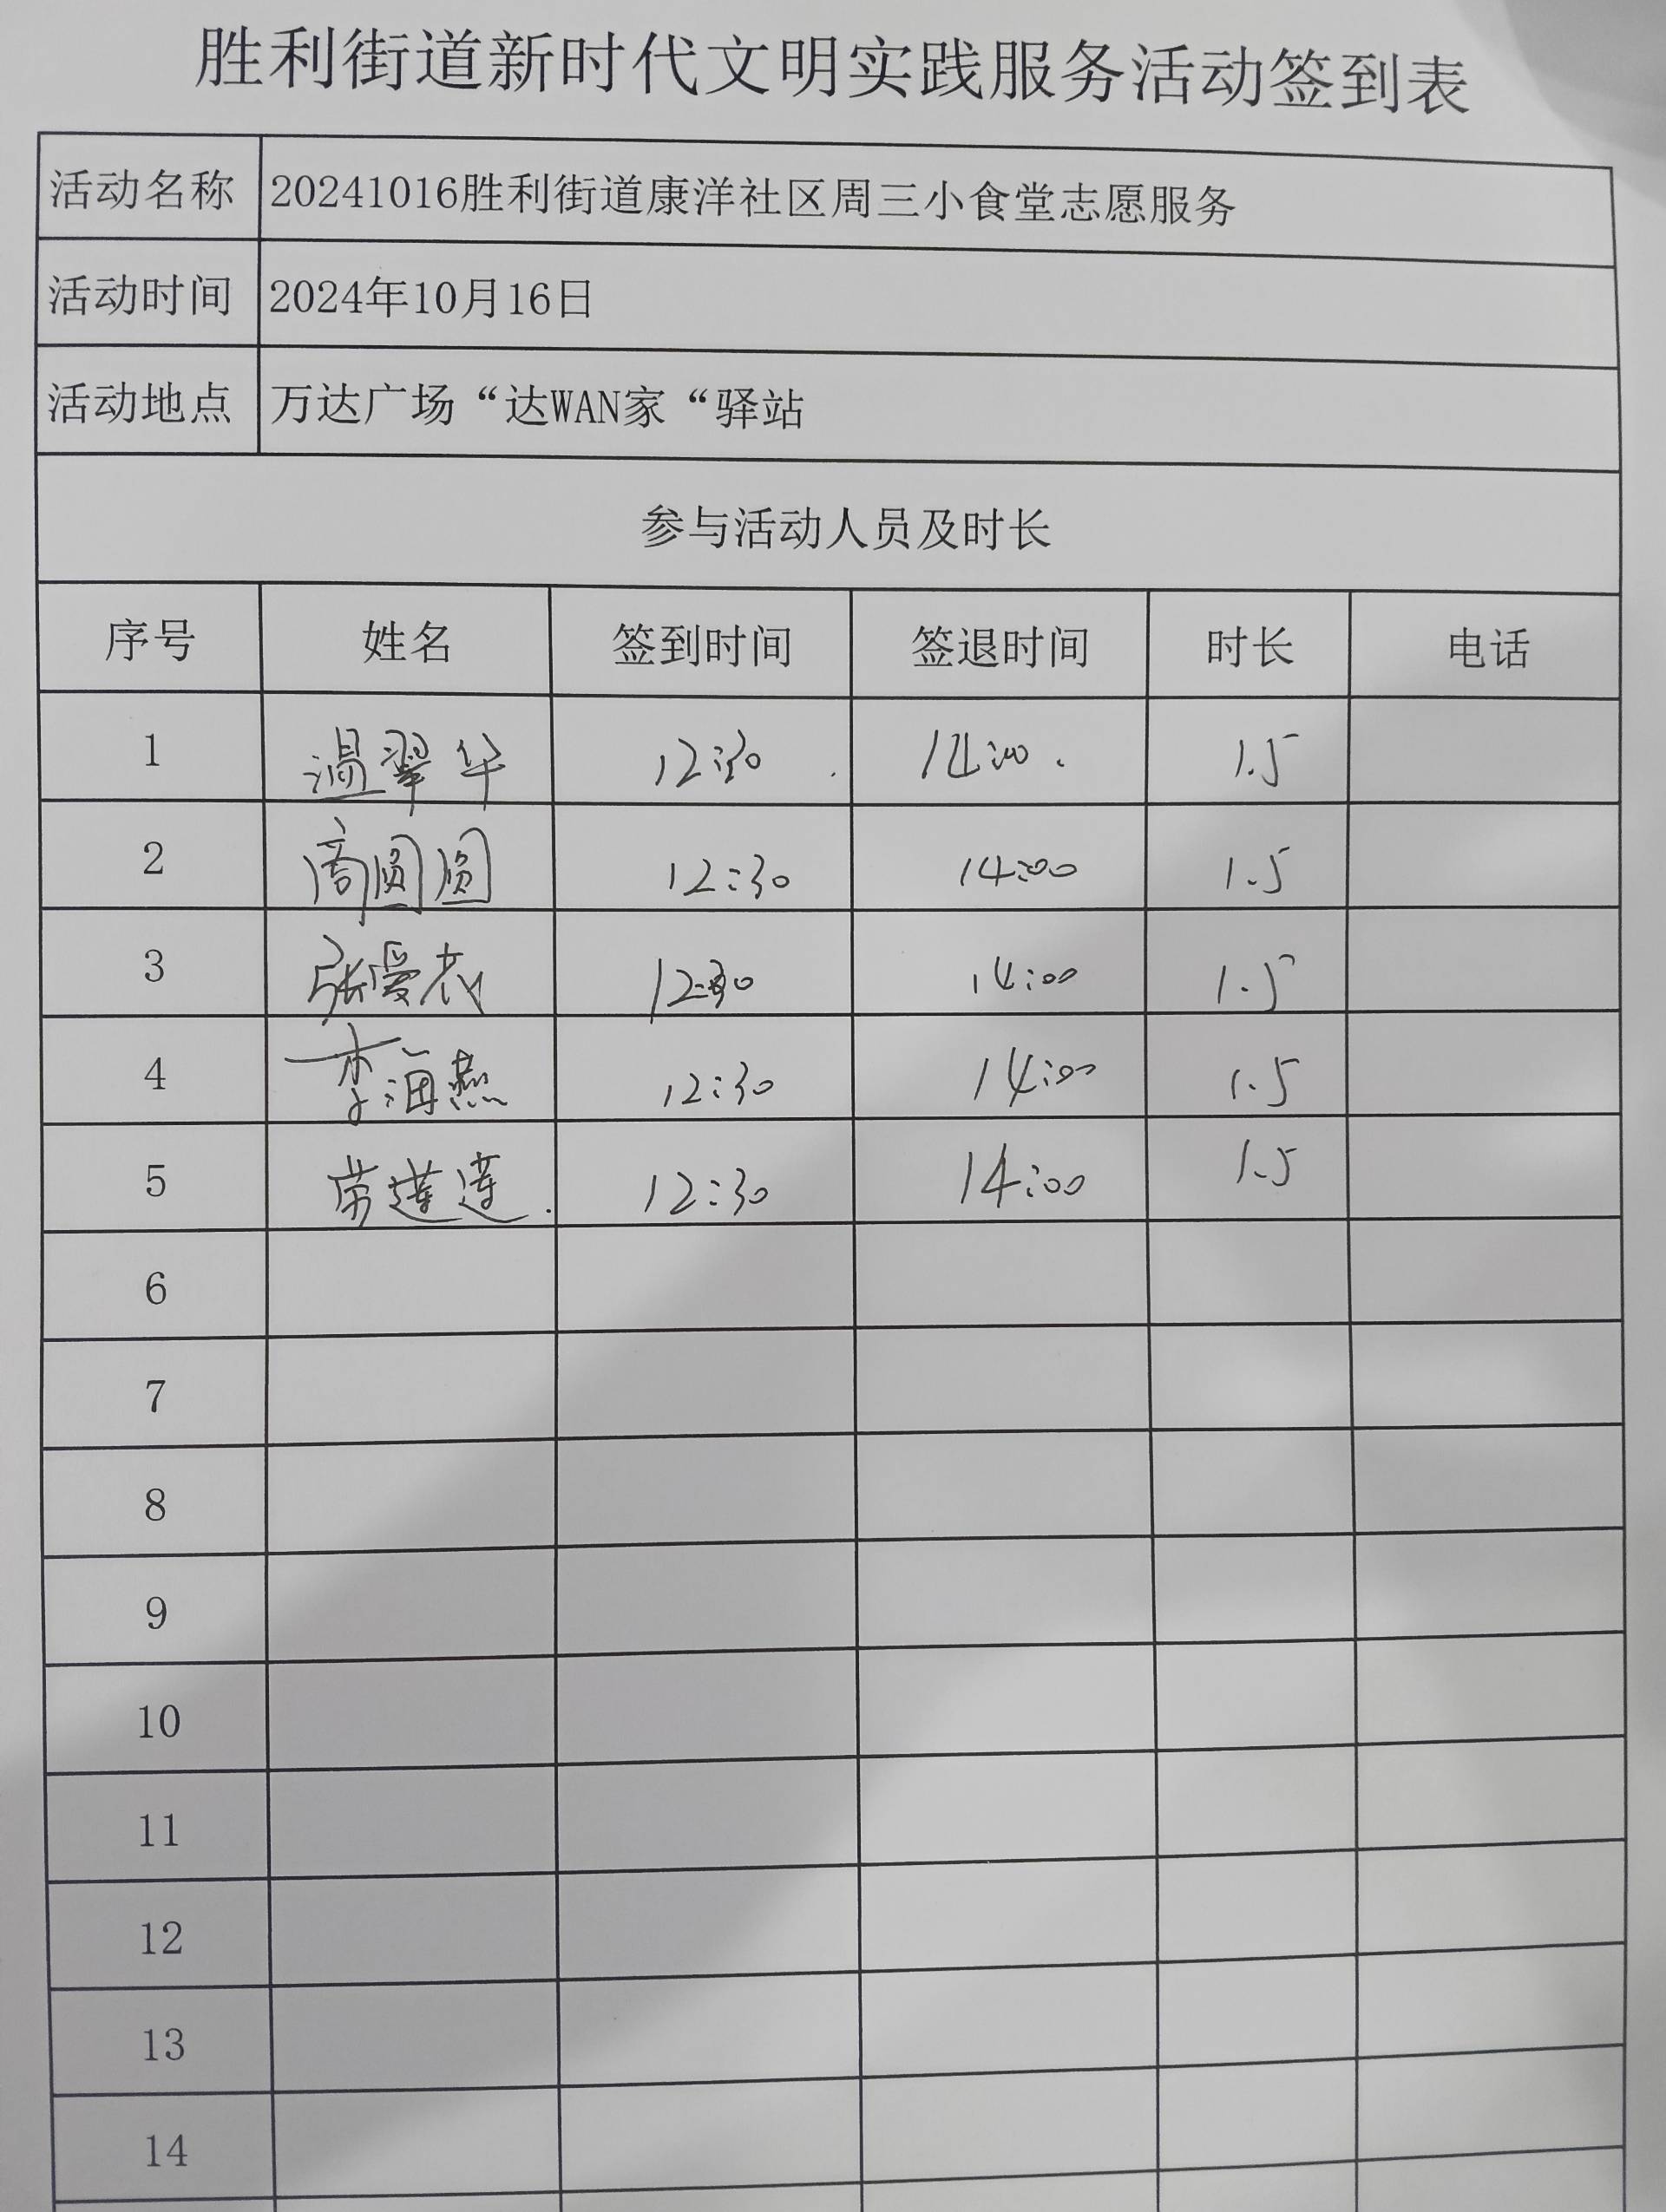 胜利街道新时代文明实践服务活动签到表
活动名称 20241016胜利街道康洋社区周三小食堂志愿服务
活动时间 2024年10月16日
活动地点 万达广场“达WAN家“驿站
参与活动人员及时长
序号 姓名 签到时间 签退时间 时长 电话
1 温翠华 12:30 14:00 1.5
2 商圆圆 12:30 14:00 1.5
3 张爱 12:30 14:00 1.5
4 李海燕 12:30 14:00 1.5
5 常莲莲 12:30 14:00 1.5
6
7
8
9
10
11
12
13
14